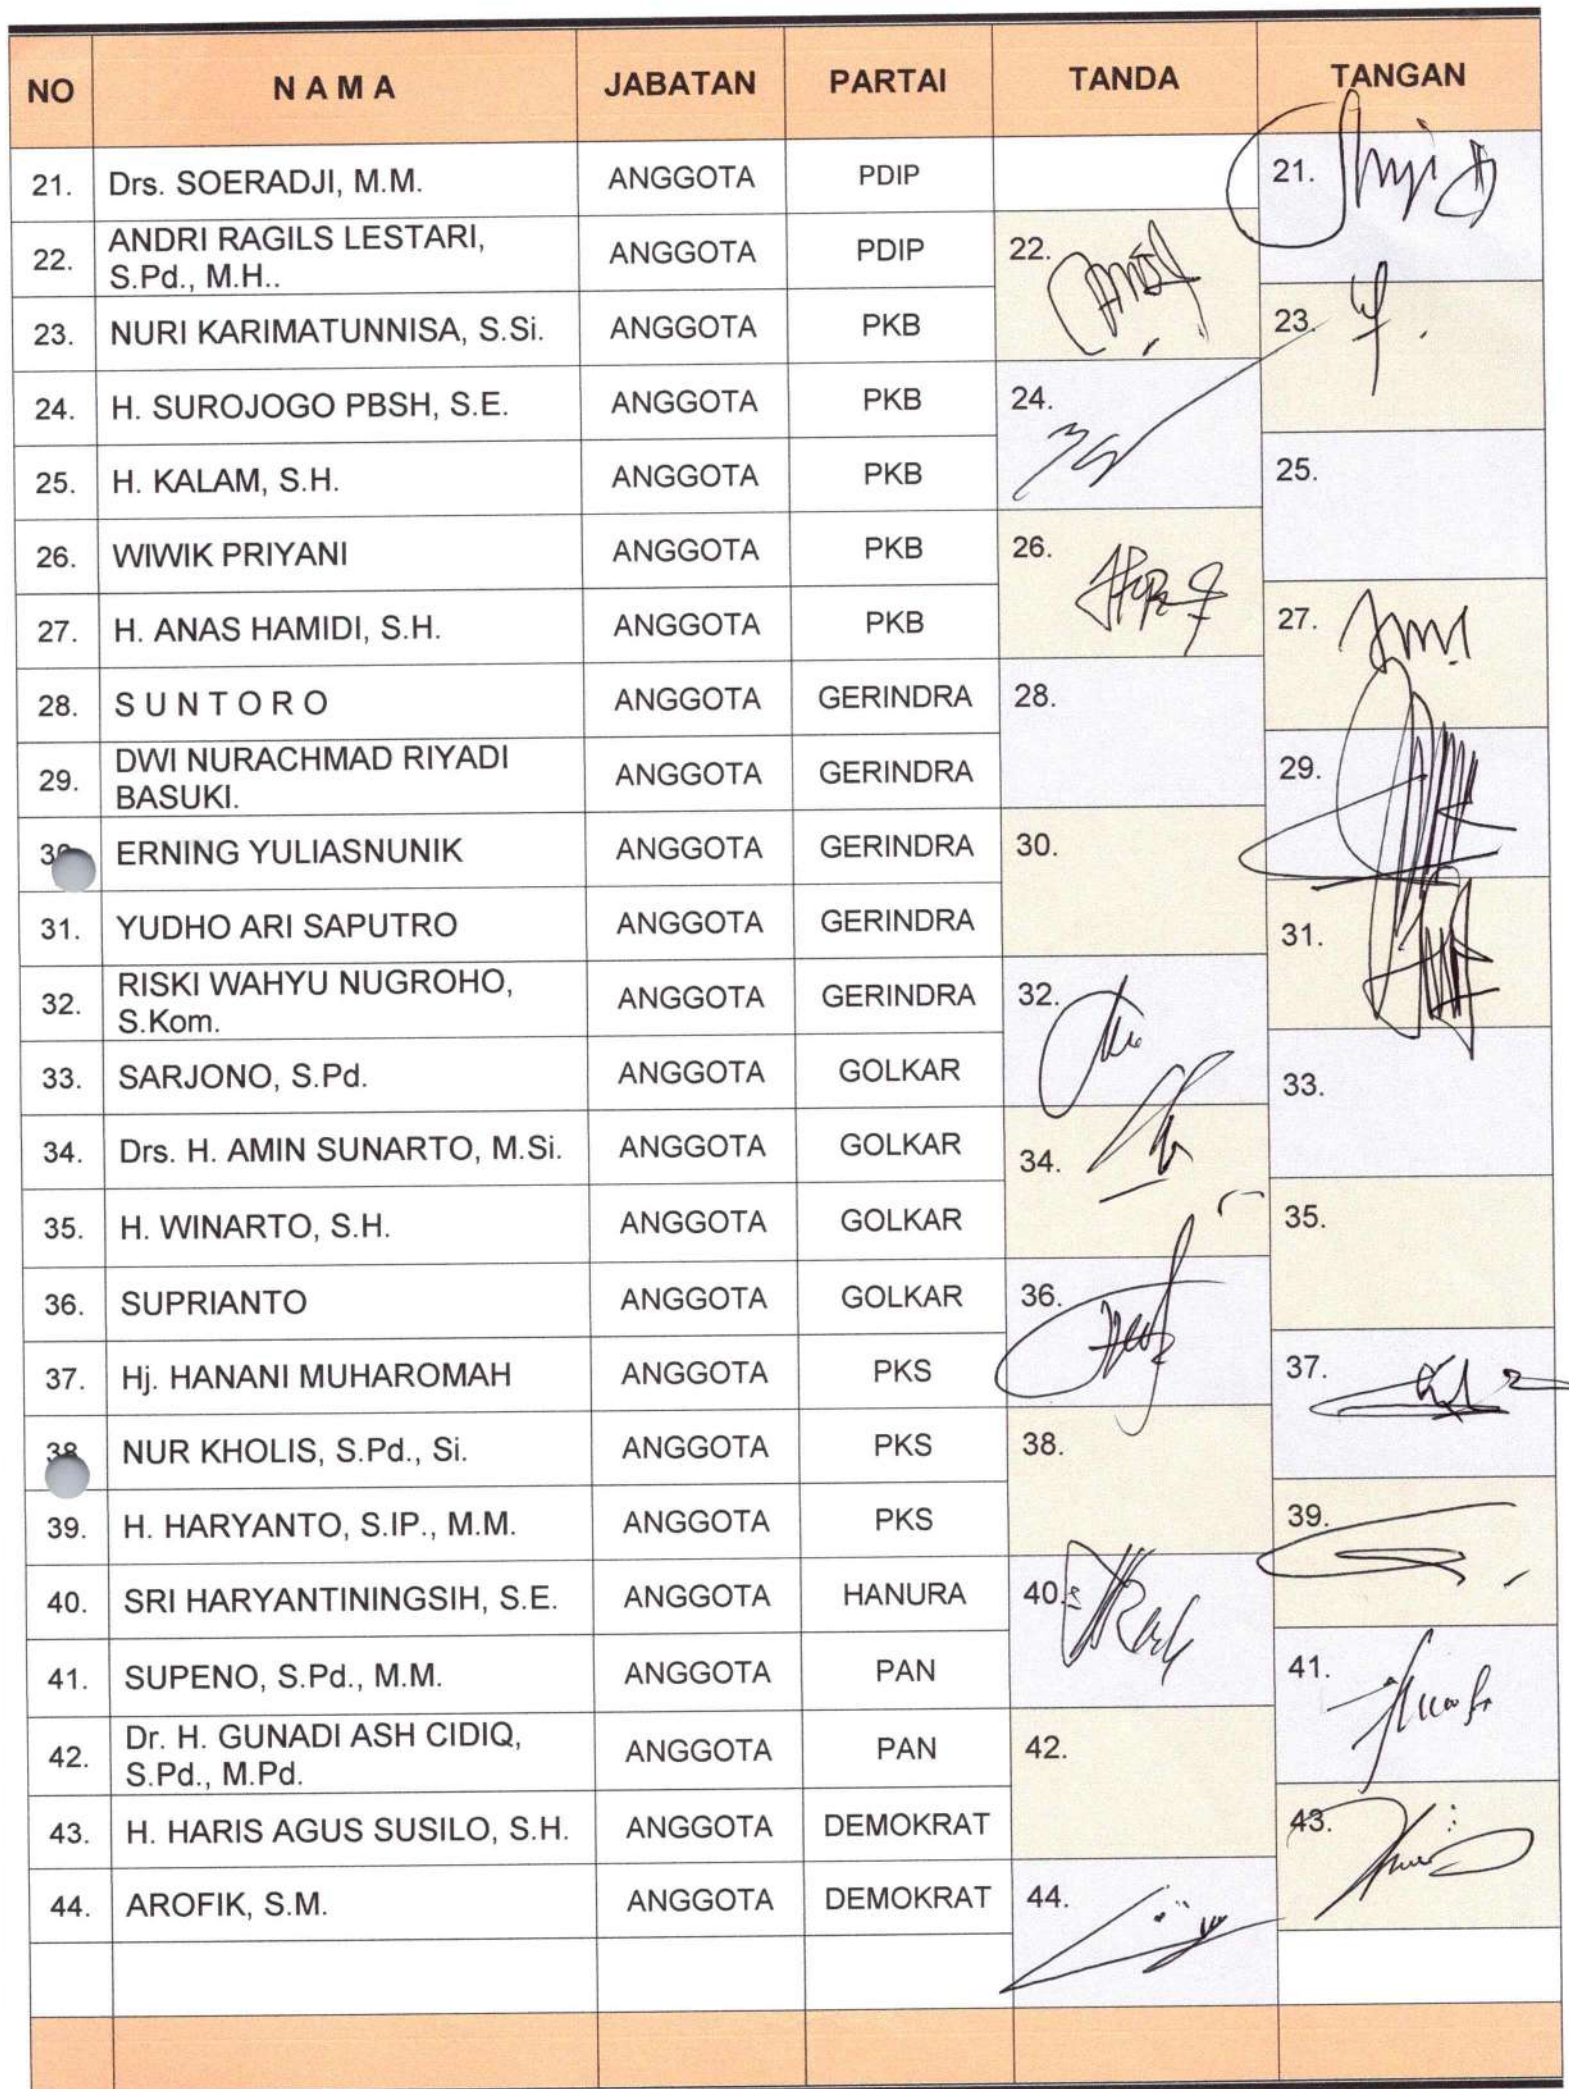 NO N A M A JABATAN PARTAI TANDA TANGAN
21. Drs. SOERADJI, M.M. ANGGOTA PDIP 21.
22. ANDRI RAGILS LESTARI, S.Pd., M.H.. ANGGOTA PDIP 22.
23. NURI KARIMATUNNISA, S.Si. ANGGOTA PKB 23.
24. H. SUROJOGO PBSH, S.E. ANGGOTA PKB 24.
25. H. KALAM, S.H. ANGGOTA PKB 25.
26. WIWIK PRIYANI ANGGOTA PKB 26.
27. H. ANAS HAMIDI, S.H. ANGGOTA PKB 27.
28. S U N T O R O ANGGOTA GERINDRA 28.
29. DWI NURACHMAD RIYADI BASUKI. ANGGOTA GERINDRA 29.
ERNING YULIASNUNIK ANGGOTA GERINDRA 30.
31. YUDHO ARI SAPUTRO ANGGOTA GERINDRA 31.
32. RISKI WAHYU NUGROHO, S.Kom. ANGGOTA GERINDRA 32.
33. SARJONO, S.Pd. ANGGOTA GOLKAR 33.
34. Drs. H. AMIN SUNARTO, M.Si. ANGGOTA GOLKAR 34.
35. H. WINARTO, S.H. ANGGOTA GOLKAR 35.
36. SUPRIANTO ANGGOTA GOLKAR 36.
37. Hj. HANANI MUHAROMAH ANGGOTA PKS 37.
38 NUR KHOLIS, S.Pd., Si. ANGGOTA PKS 38.
39. H. HARYANTO, S.IP., M.M. ANGGOTA PKS 39.
40. SRI HARYANTININGSIH, S.E. ANGGOTA HANURA 40.
41. SUPENO, S.Pd., M.M. ANGGOTA PAN 41.
42. Dr. H. GUNADI ASH CIDIQ, S.Pd., M.Pd. ANGGOTA PAN 42.
43. H. HARIS AGUS SUSILO, S.H. ANGGOTA DEMOKRAT 43.
44. AROFIK, S.M. ANGGOTA DEMOKRAT 44.